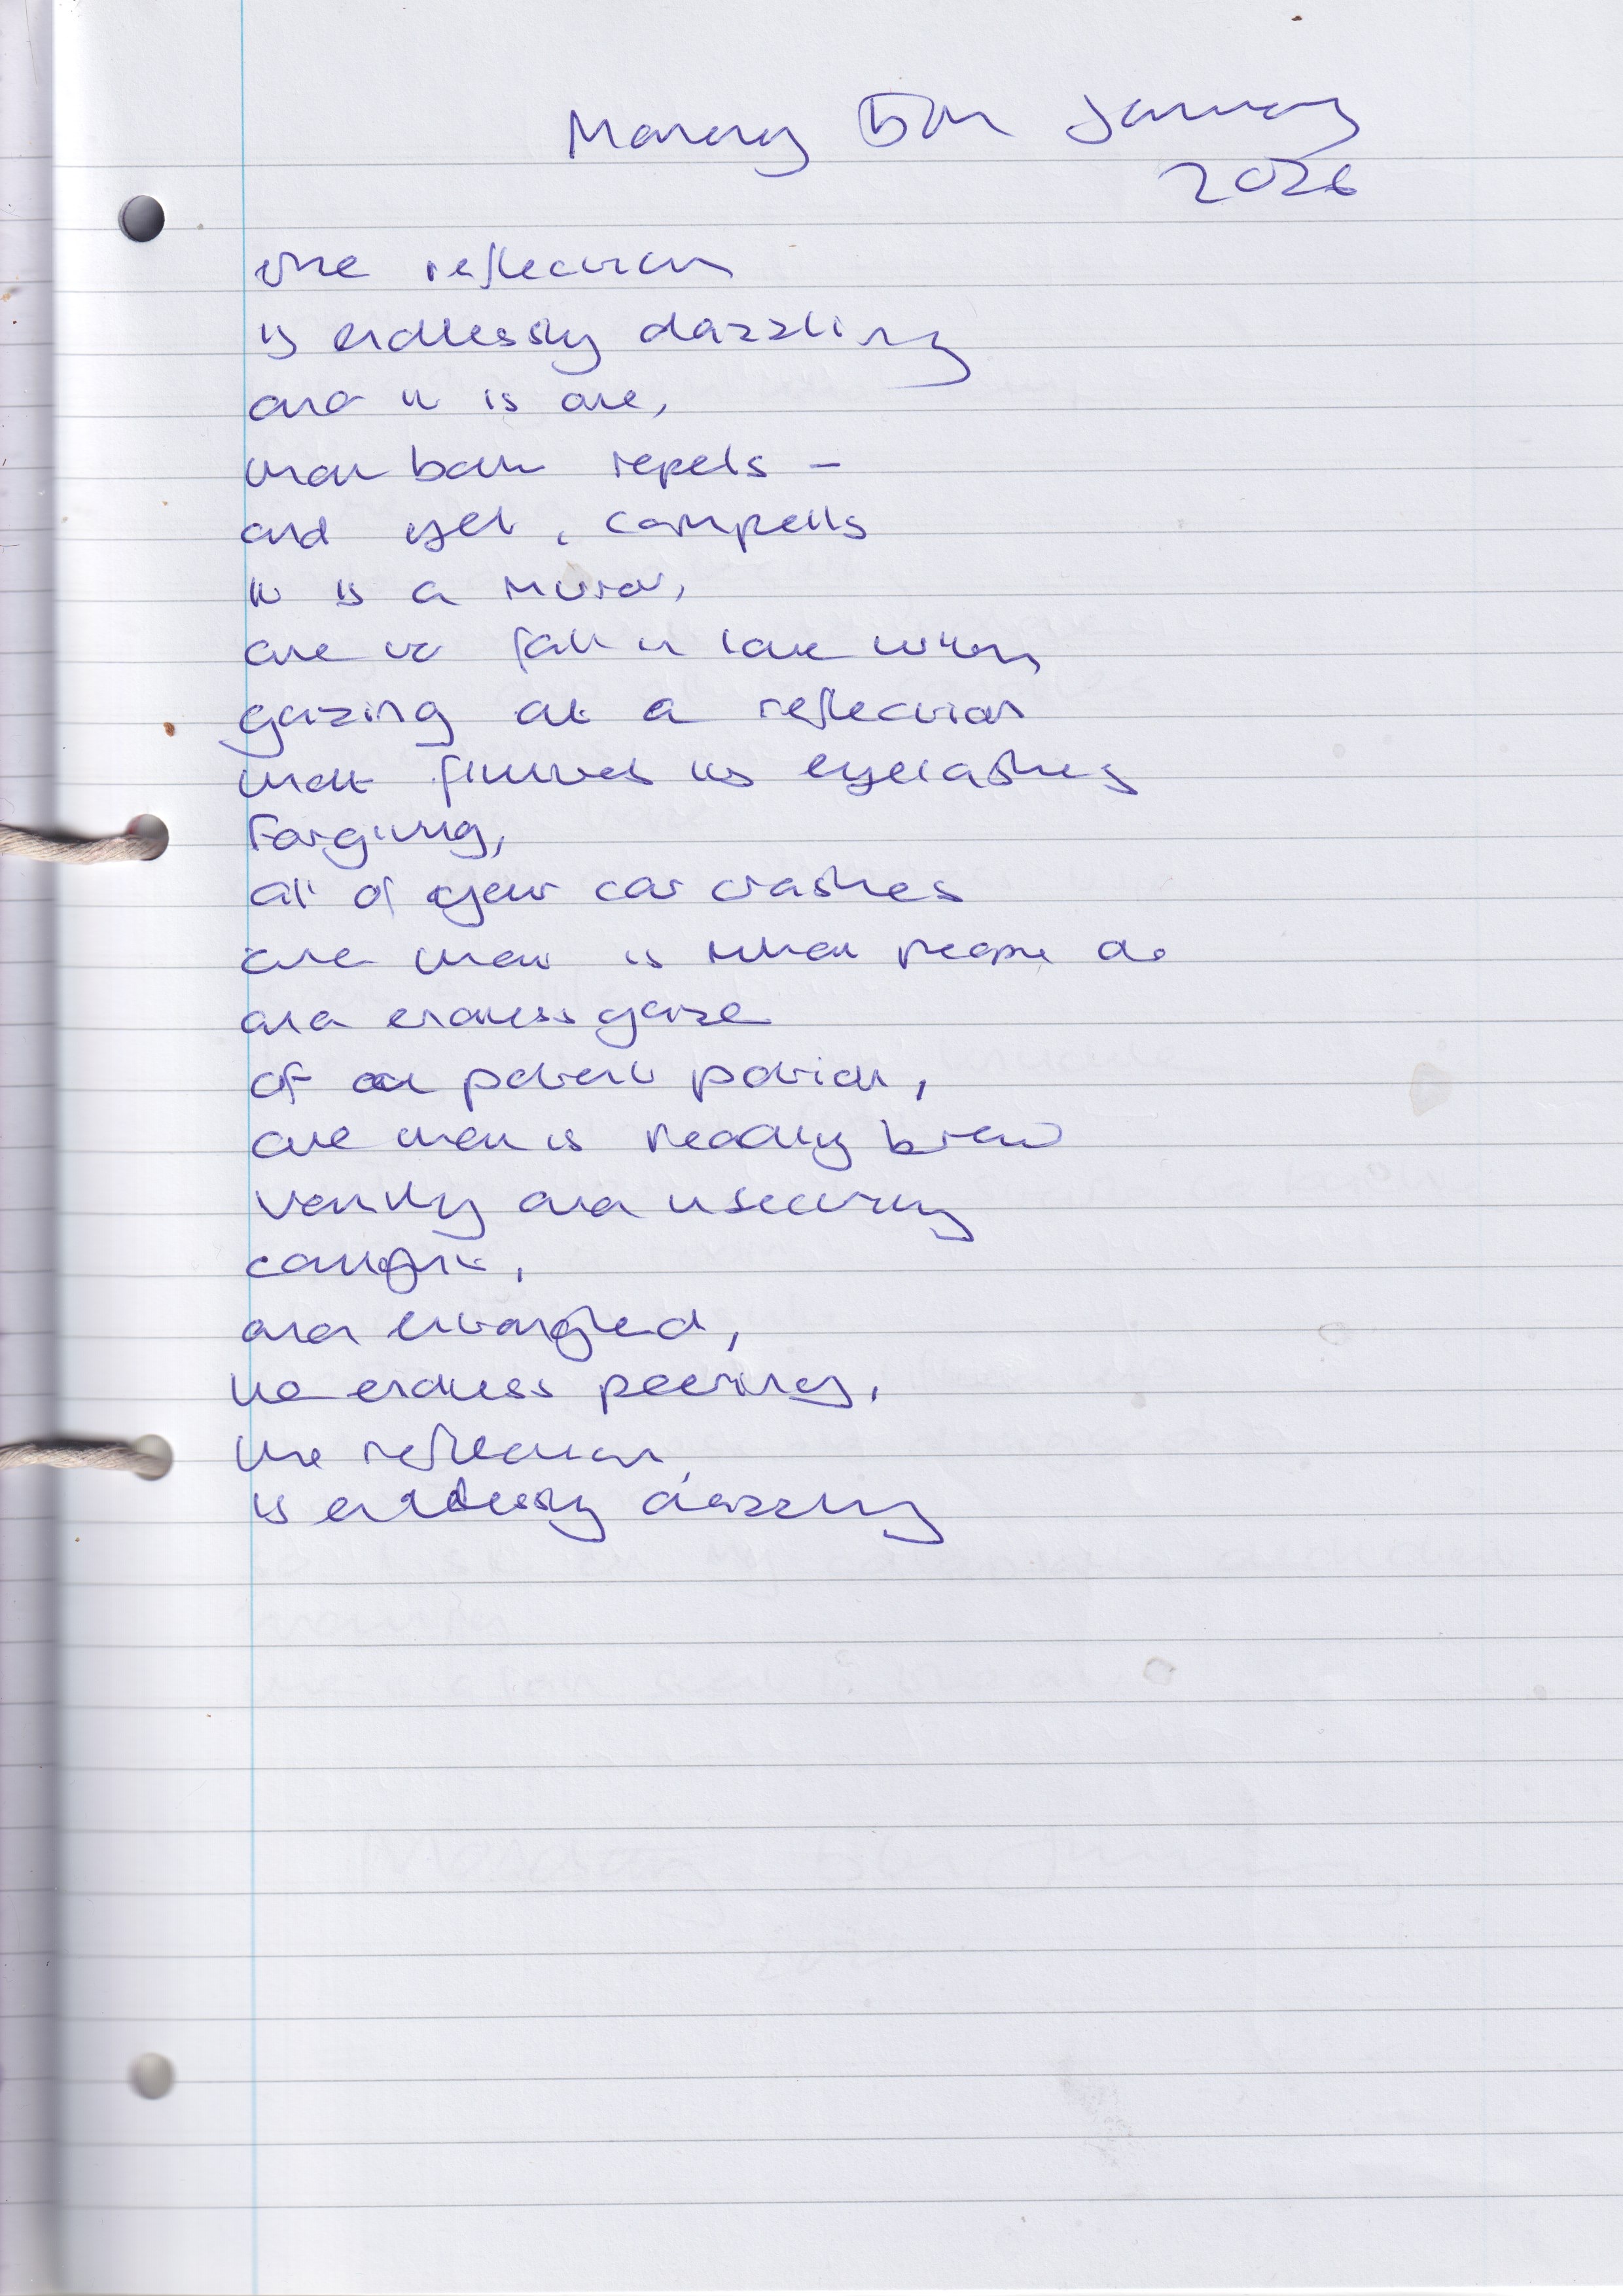 Monday 5th January
2026
the reflection
is endlessly dazzling
and it is one,
that both repels -
and yet, compells
it is a mirror,
one to fall in love with,
gazing at a reflection
that flutters its eyelashes
Forgiving,
all of your car crashes
and that is what people do
and endless gaze
of a potent potion,
one that is heady brew
vanity and insecurity
caught,
and entangled,
the endless peering,
the reflection,
is endlessly dazzling